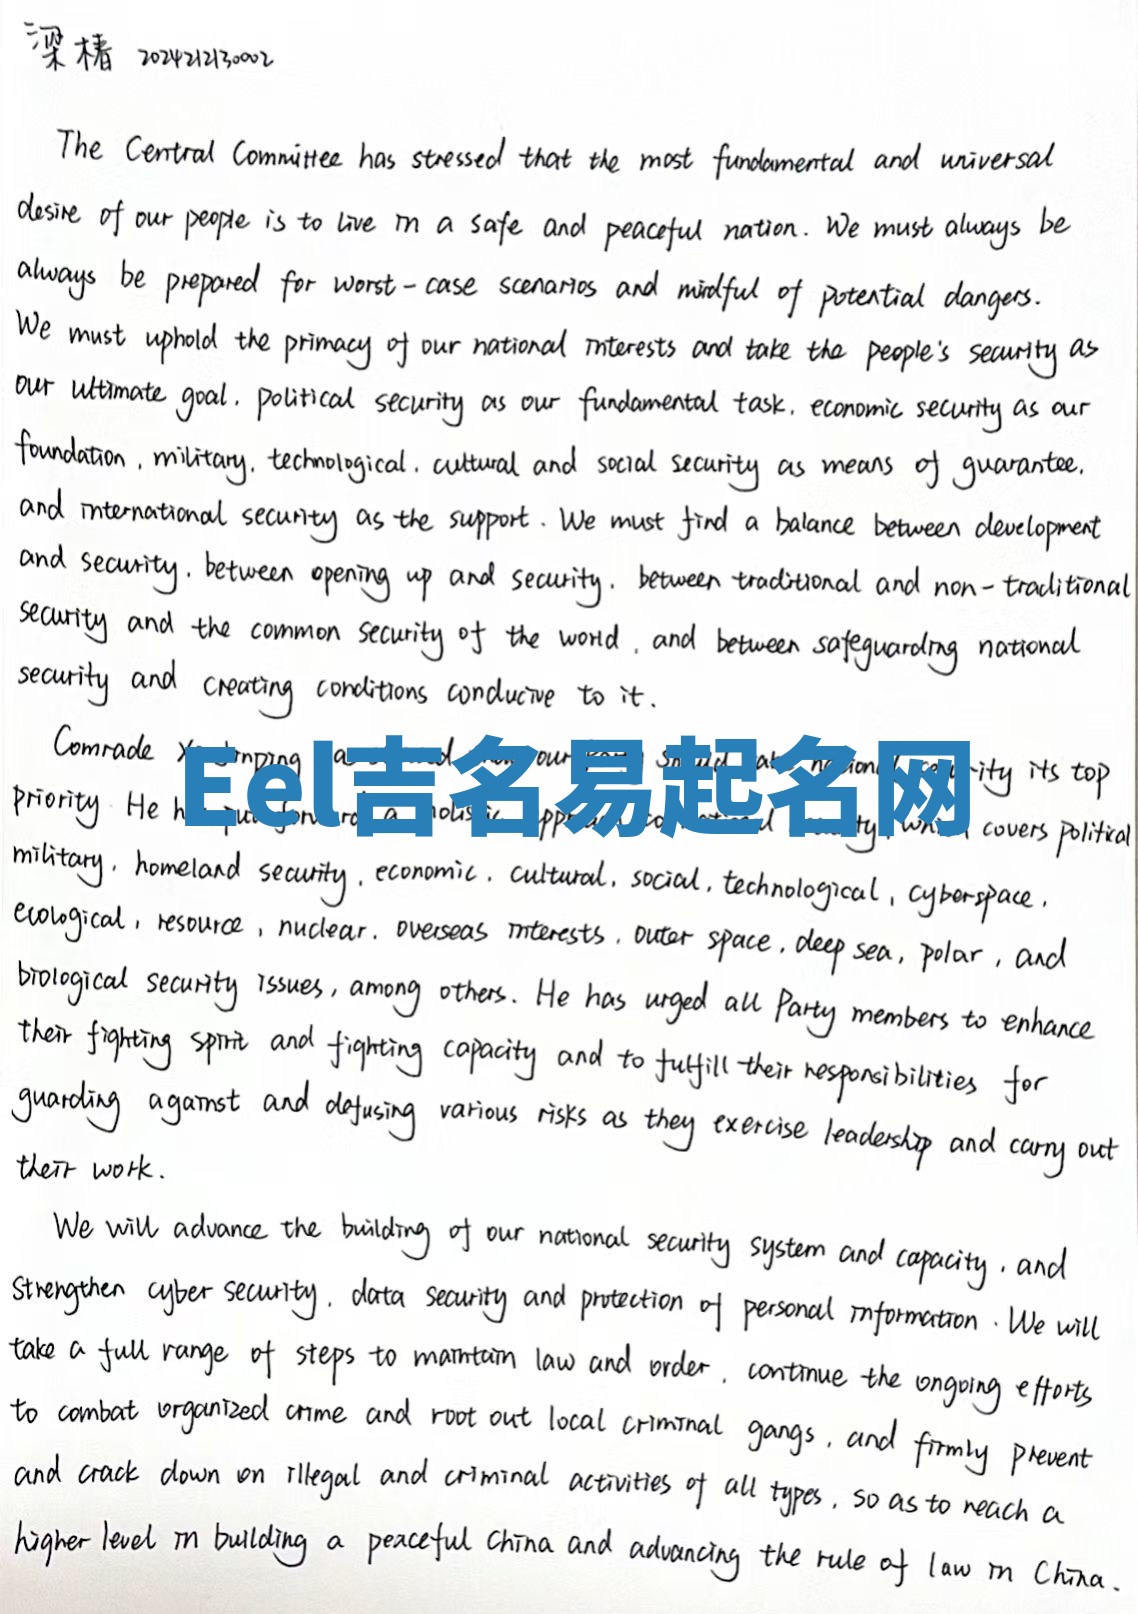 梁椿 2024212130002
The Central Committee has stressed that the most fundamental and universal
desire of our people is to live in a safe and peaceful nation. We must always be
always be prepared for worst-case scenarios and mindful of potential dangers.
We must uphold the primacy of our national interests and take the people's security as
our ultimate goal, political security as our fundamental task, economic security as our
foundation, military, technological, cultural and social security as means of guarantee,
and international security as the support. We must find a balance between development
and security, between opening up and security, between traditional and non-traditional
security and the common security of the world, and between safeguarding national
security and creating conditions conducive to it.
Comrade our its top
Eel吉名易起名网
priority. He covers political
military, homeland security, economic, cultural, social, technological, cyberspace,
ecological, resource, nuclear, overseas interests, outer space, deep sea, polar, and
biological security issues, among others. He has urged all Party members to enhance
their fighting spirit and fighting capacity and to fulfill their responsibilities for
guarding against and defusing various risks as they exercise leadership and carry out
their work.
We will advance the building of our national security system and capacity, and
strengthen cyber security, data security and protection of personal information. We will
take a full range of steps to maintain law and order, continue the ongoing efforts
to combat organized crime and root out local criminal gangs, and firmly prevent
and crack down on illegal and criminal activities of all types, so as to reach a
higher level in building a peaceful China and advancing the rule of law in China.